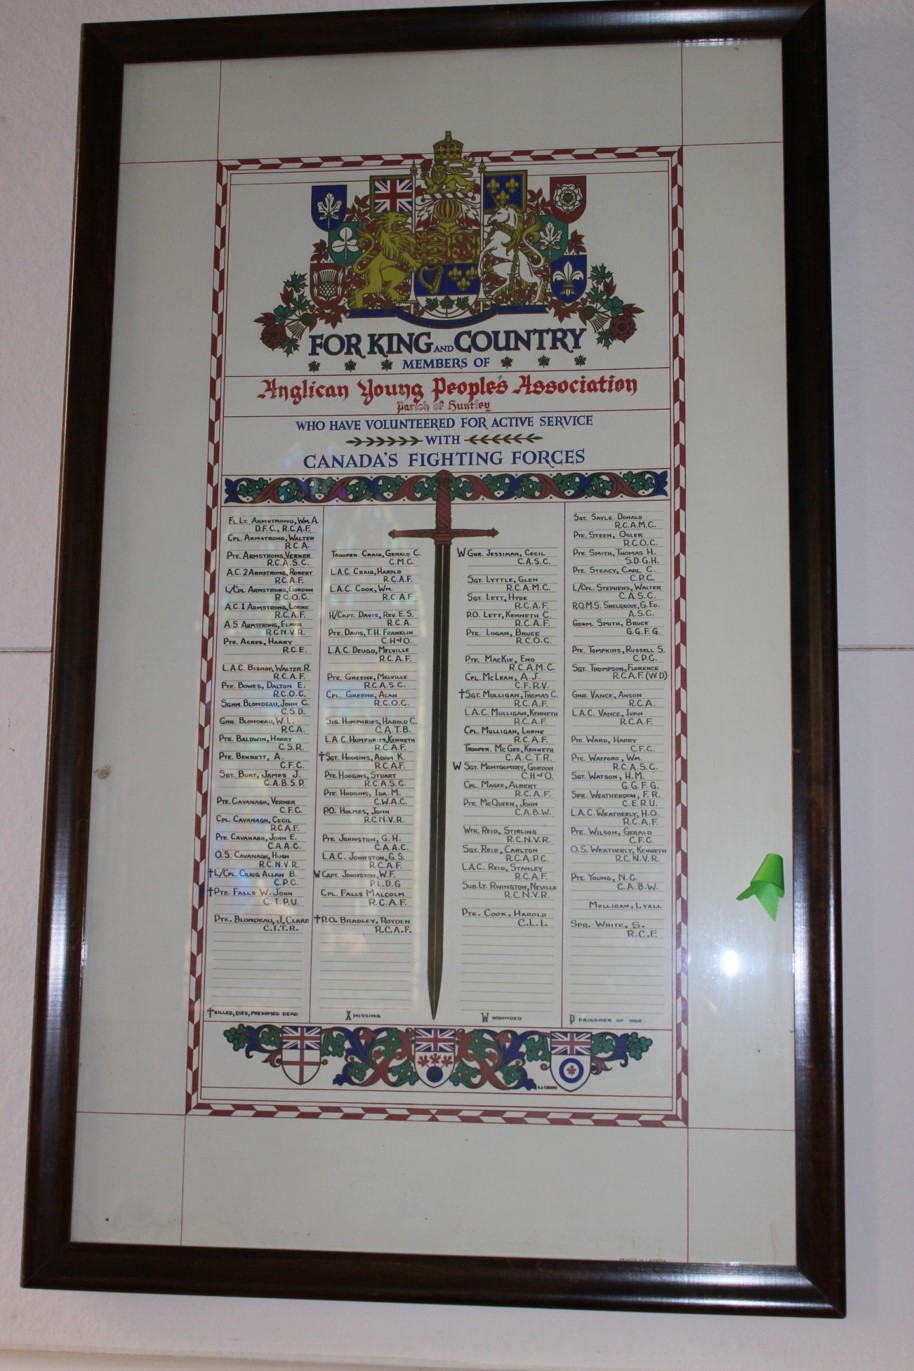 FOR KING AND COUNTRY
MEMBERS OF
Anglican Young People's Association
Parish of Huntley
WHO HAVE VOLUNTEERED FOR ACTIVE SERVICE
WITH
CANADA'S FIGHTING FORCES
FL.LT. ARMSTRONG, WM. A.
D.F.C., R.C.A.F.
CPL. ARMSTRONG, WALTER
R.C.A.
PTE. ARMSTRONG, VERNER
R.C.A.S.C.
A.C.2 ARMSTRONG, ROBERT
R.C.A.F.
L/CPL. ARMSTRONG, GORDON
R.C.O.C.
A.C.1 ARMSTRONG, LORNE
R.C.A.F.
A.S. ARMSTRONG, ELMER
R.C.N.V.R.
PTE. ACRES, HARRY
R.C.E.
L.A.C. BISHOP, WALTER R.
R.C.A.F.
PTE. BOWES, DALTON E.
R.C.O.C.
SGMN. BLONDEAU, JOHN C.
C.S.D.
GNR. BLONDEAU, W.L.
R.C.A.
PTE. BALDWIN, HARRY
C.S.R.
PTE. BENNETT, A.
C.F.C.
SGT. BURT, JAMES J.
C.A.B.S.P.
PTE. CAVANAGH, VERNER
C.F.C.
CPL. CAVANAGH, CECIL
R.C.A.F.
PTE. CAVANAGH, JOHN E.
C.A.A.C.
O.S. CAVANAGH, HUGH
R.C.N.V.R.
†L/CPL. CRAIG ALLAN B.
C.P.C.
†PTE. FALLS W. JOHN
C.I.P.U.
PTE. BLONDEAU, J. CLARE
C.I.T.R.
† KILLED, DIED, PRESUMED DEAD
TROOPER CRAIG, GERALD C.
C.M.C.
L.A.C. CRAIG, HAROLD
R.C.A.F.
L.A.C. COOK, WM.
R.C.A.F.
H/CAPT. DAVIS, REV. E.S.
R.C.A.
PTE. DAVIS, T.H. FRANKLIN
C.H OF O.
L.A.C. DEUGO, MELVILLE
R.C.A.F.
PTE. GREENE, MELVILLE
R.C.A.S.C.
CPL. GREENE, ALAN
R.C.O.C.
SIG. HUMPHRIES, HAROLD C.
C.A.T.B.
L.A.C. HUMPHRIES, KENNETH
R.C.A.F.
†SGT. HODGINS, ADAM K.
R.C.A.F.
PTE. HODGINS, STUART
R.C.A.S.C.
PTE. HODGINS, IDA M.
C.W.A.C.
P.O. HOLMES, JOHN
R.C.N.V.R.
PTE. JOHNSTON, G.H.
C.A.A.C.
L.A.C. JOHNSTON, G.S.
R.C.A.F.
W CAPT. JOHNSTON, W.F.
P.L.D.G.
CPL. FALLS MALCOLM
R.C.A.F.
†P.O. BRADLEY, ROYDEN
R.C.A.F.
X MISSING
W GNR. JESSIMAN, CECIL
C.A.S.C.
SGT. LYTTLE, GLEN
R.C.A.M.C.
SGT. LETT, HYDE
R.C.A.F.
P.O. LETT, KENNETH C.
R.C.A.F.
PTE. LOGAN, BRUCE
R.C.O.C.
PTE. MACKIE, ENO
R.C.A.M.C.
CPL. MCLEAN, A.J.
C.F.R.V.
†SGT. MULLIGAN, THOMAS C.
R.C.A.F.
L.A.C. MULLIGAN, KENNETH
R.C.A.F.
CPL. MULLIGAN, LORNE
R.C.A.F.
TROOPER. MCGEE, KENNETH
C.A.C.T.R.
W SGT. MONTGOMERY, GORDON
C.H OF O.
CPL. MAGEE, ALBERT
R.C.A.F.
PTE. MCQUEEN, JOHN
C.A.B.W.
WTR. REID, STIRLING
R.C.N.V.R.
SGT. REID, CARLTON
R.C.A.P.C.
L.A.C. REID, STANLEY
R.C.A.F.
SUB.LT. RIVINGTON, NEVILLE
R.C.N.V.R.
PTE. COOK, HAROLD
C.L.I.
W WOUNDED
SGT. SAYLE DONALD
R.C.A.M.C.
PTE. STEEN, OGLER
R.C.O.C.
PTE. SMITH, THOMAS H.
S.D.G.H.
PTE. STEACY, CARL C.
C.P.C.
L/CPL. STEPHENS, WALTER
C.A.S.C.
R.Q.M.S. SHELDRICK, G. ED.
A.S.C.
GDSM. SMITH, BRUCE
G.G.F.G.
PTE. TOMPKINS, RUSSELL S.
C.P.C.
SGT. THOMPSON, FLORENCE
R.C.A.F. (W.D)
GNR. VANCE, ANSON
R.C.A.
L.A.C. VANCE, IVAN
R.C.A.F.
PTE. WARD, HARRY
C.F.C.
PTE. WAFFORD, WM.
R.C.A.S.C.
SGT. WATSON, H.M.
G.G.F.G.
SPR. WEATHERDON, F.R.
C.E.R.U.
L.A.C. WEATHERLY, H.O.
R.C.A.F.
PTE. WILSON, GERALD
C.F.C.
O.S. WEATHERLY, KENNETH
R.C.N.V.R.
PTE. YOUNG, N.G.
C.A.B.W.
MULLIGAN, LYALL
SPR. WHITE, S.
R.C.E.
P PRISONER OF WAR